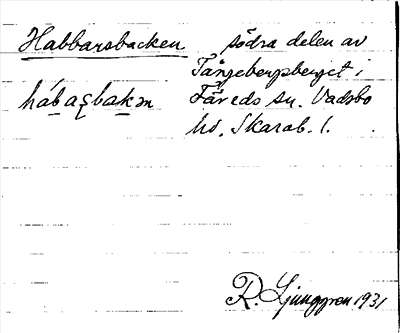 Habbarsbacken södra delen av
Tångebergsberget i
hábaʂbakən Färeds sn. Vadsbo
hd, Skarab. l.
R. Ljunggren 1931